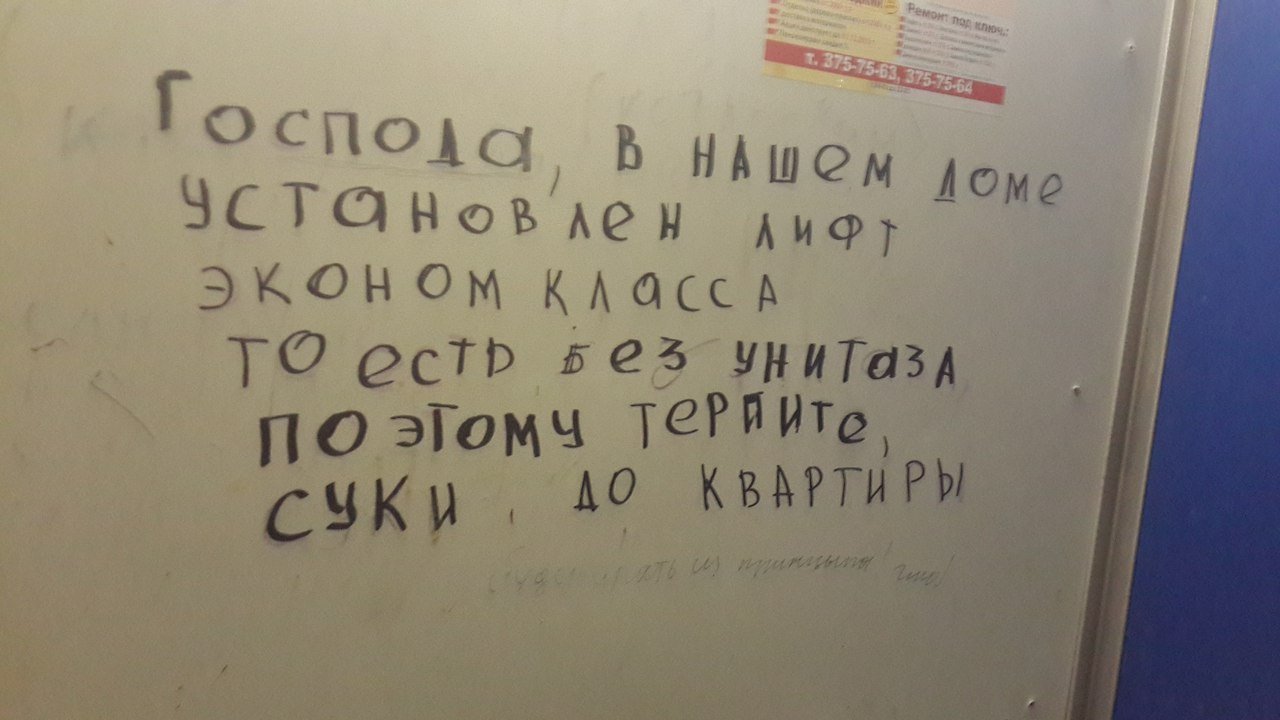 Ремонт под ключ.:
т. 375-75-63, 375-75-64
Господа, в нашем доме
установлен лифт
эконом класса
то есть без унитаза
поэтому терпите,
суки, до квартиры